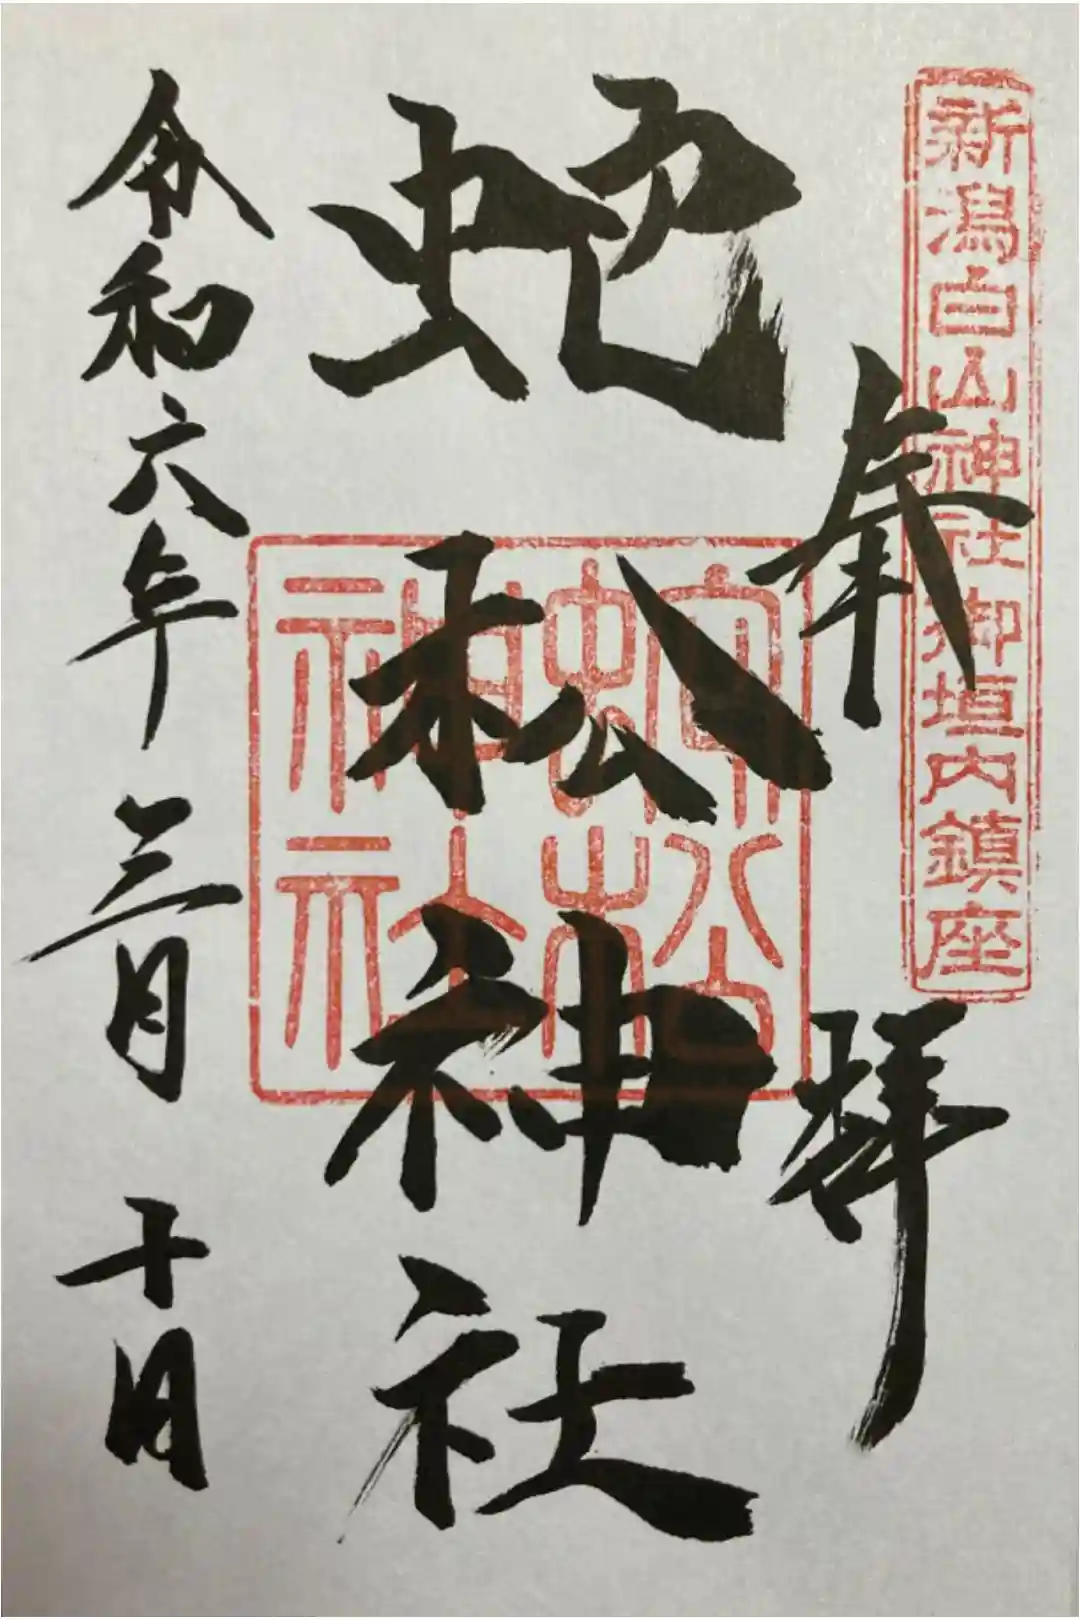 新潟白山神社御垣内鎮座
奉拝
蛇松神社
令和六年三月十日